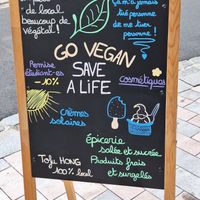 de local
beaucoup de
végétal !
Ça m'a jamais
tué personne
de me tuer
personne !
GO VEGAN
SAVE
A LIFE
Remise
étudiant·es
-10%
Cosmétiques
Crèmes
solaires
Épicerie
salée et sucrée
Produits frais
et surgelés
Tofu HONG
100% local